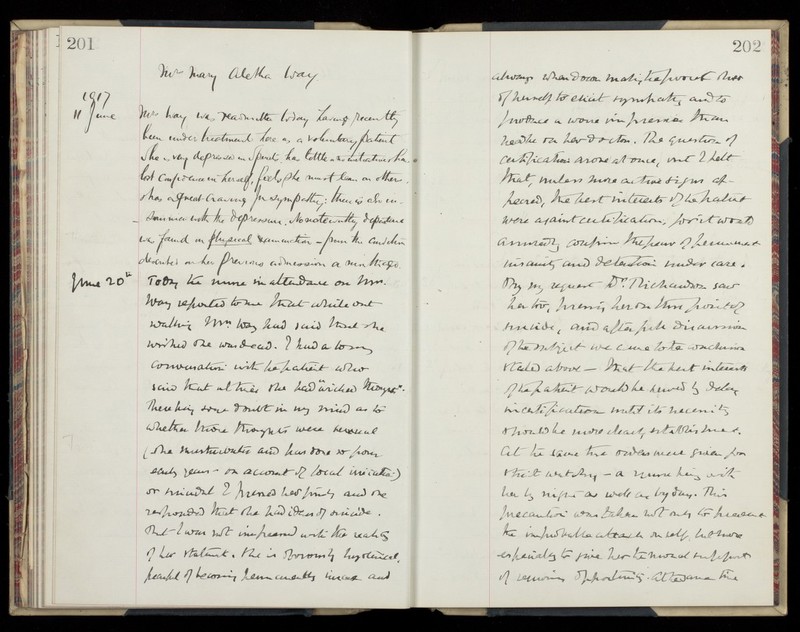 201
Mrs Mary Aletha Way
1917
11 June
Mrs Way was readmitted today having recently
been under treatment here as a voluntary patient
She is very depressed in spirit, has little or no initiative & has
lost confidence in herself, feels she must lean on others
& has a great craving for sympathy: there is
with the depression. No noteworthy departure
was found on physical examination from the condition
described on her previous admission a month ago.
June 20th
Today the nurse in attendance on Mrs.
Way reported to me that while out
walking Mrs. Way had said that she
wished she was dead. I had a long
conversation with the patient who
said that at times she had "wicked thoughts".
There being some doubt in my mind as to
whether these thoughts were sexual
(she masturbates and has done so from
early years - on account of local irritation)
or suicidal I pressed her firmly and she
responded that she had ideas of suicide.
But I was not impressed with the reality
of her statement. She is obviously hysterical,
fearful of becoming permanently insane and
202
always when doctor makes the
of herself to elicit sympathy and to
produce a worse impression than
on her doctor. The question of
certification arose at once, but I felt
that, unless more active signs ap-
peared, the best interests of the patient
were against certification, for it would
confirm the fear of permanent
insanity and detention under care.
By my request Dr. Richardson saw
her too, pressing her on this point of
suicide, and after full discussion
of the subject we came to the conclusion
stated above - that the best interests
of the patient would be served by delay
in certification until its necessity
should be more clearly established.
At the same time orders were given for
strict watching - a nurse being with
her by night as well as by day. This
precaution was taken not only to prevent
the improbable attack on self, but more
especially to give her the moral support
of removing opportunity. At the same time